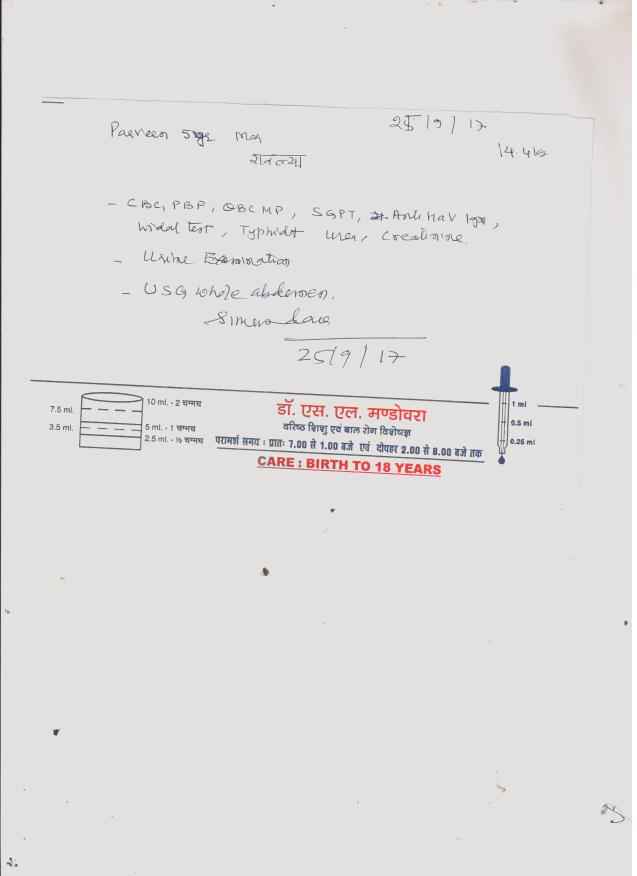 25/9/17
Parveen 5yr Meg
14.4 kg
रावल्या
- CBC, PBF, QBC MP, SGPT, Anti HAV Igm,
Widal test, Typhidot urea, Creatinine.
- Urine Examination
- USG whole abdomen.
25/9/17
10 ml. - 2 चम्मच
7.5 ml.
5 ml. - 1 चम्मच
3.5 ml.
2.5 ml. - ½ चम्मच
डॉ. एस. एल. मण्डोवरा
वरिष्ठ शिशु एवं बाल रोग विशेषज्ञ
परामर्श समय : प्रातः 7.00 से 1.00 बजे एवं दोपहर 2.00 से 8.00 बजे तक
CARE : BIRTH TO 18 YEARS
1 ml
0.5 ml
0.25 ml